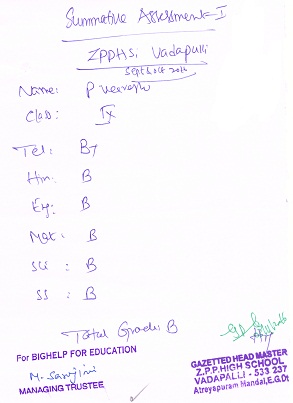 Summative Assessment-I
ZPPHS, Vadapalli
Sept & Oct 2016
Name: P Veeresh
Class: IX
Tel: B+
Hin: B
Eng: B
Mat: B
Sci: B
SS: B
Total Grade: B
For BIGHELP FOR EDUCATION
M. Sarojini
MANAGING TRUSTEE
GAZETTED HEAD MASTER
Z.P.P.HIGH SCHOOL
VADAPALLI - 533 237
Atreyapuram Mandal,E.G.Dt